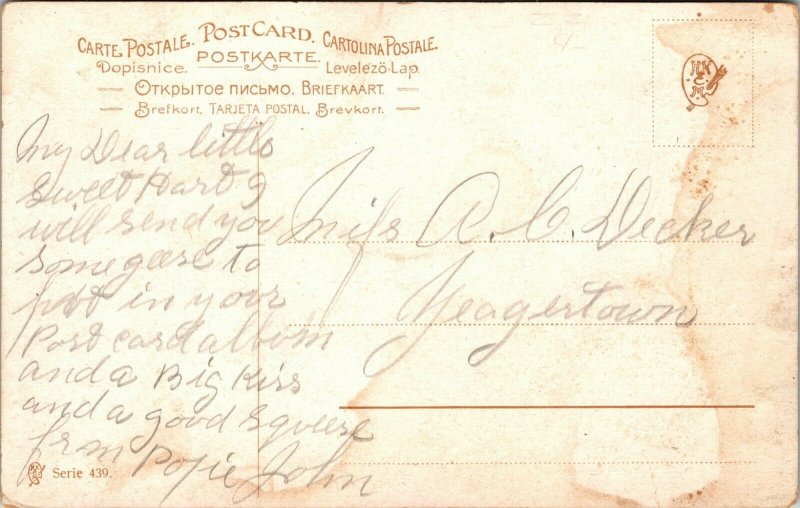 CARTE POSTALE. POST CARD. CARTOLINA POSTALE.
POSTKARTE.
Dopisnice. Levelező-Lap.
Открытое письмо. Briefkaart.
Brefkort. TARJETA POSTAL. Brevkort.
HK
&
M
My Dear little
sweet Hart I
will send you
some geese to
put in your
Post card albom
and a Big Kiss
and a good squeese
frm Popie John
Miss A. C. Decker
Yeagertown
Serie 439.